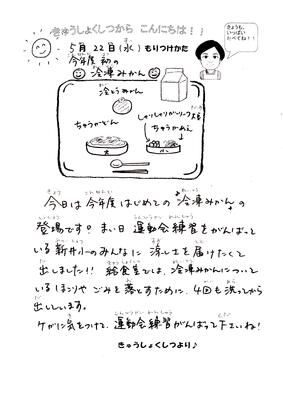 きゅうしょくしつから こんにちは！！
きょうも、
いっぱい
たべてね！！
5月22日（水）もりつけかた
今年度 初の
冷凍みかん
冷とうみかん
しゃりしゃりがリーフス
ちゅうかどん
ちゅうかあえ
今日は 今年度 はじめての "冷凍みかん" の
登場です。まい日 運動会練習をがんばって
いる 新井小のみんなに 涼しさを 届けたくて
出しました!! 給食室では、冷凍みかんについて
いる ほこりや ごみを 落とすために、4回も 洗ってから
出しています。
ケガに気をつけて、運動会練習がんばって下さいね！
きゅうしょくしつより♪